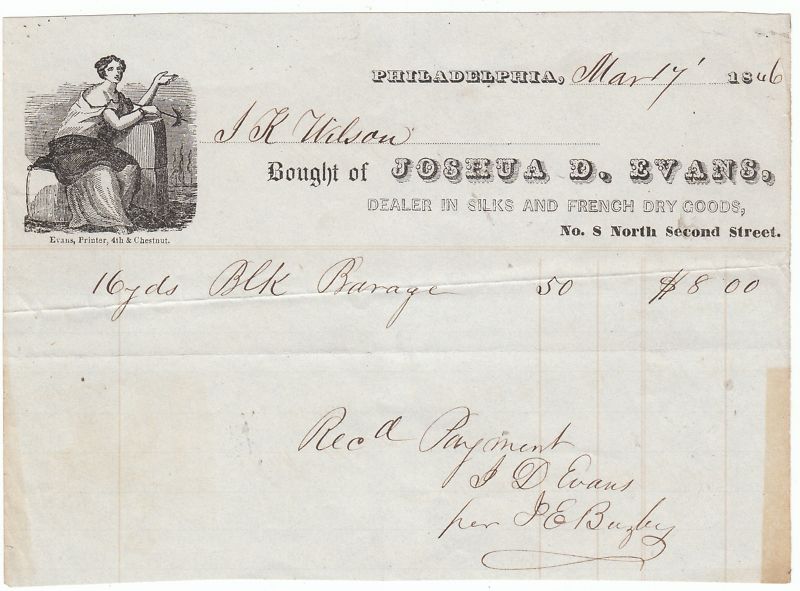 PHILADELPHIA, Mar 17' 1846
J K Wilson
Bought of JOSHUA D. EVANS,
DEALER IN SILKS AND FRENCH DRY GOODS,
No. 8 North Second Street.
Evans, Printer, 4th & Chestnut.
16yds Blk Barage 50 $8 00
Recd Payment
J D Evans
per J E Buzby